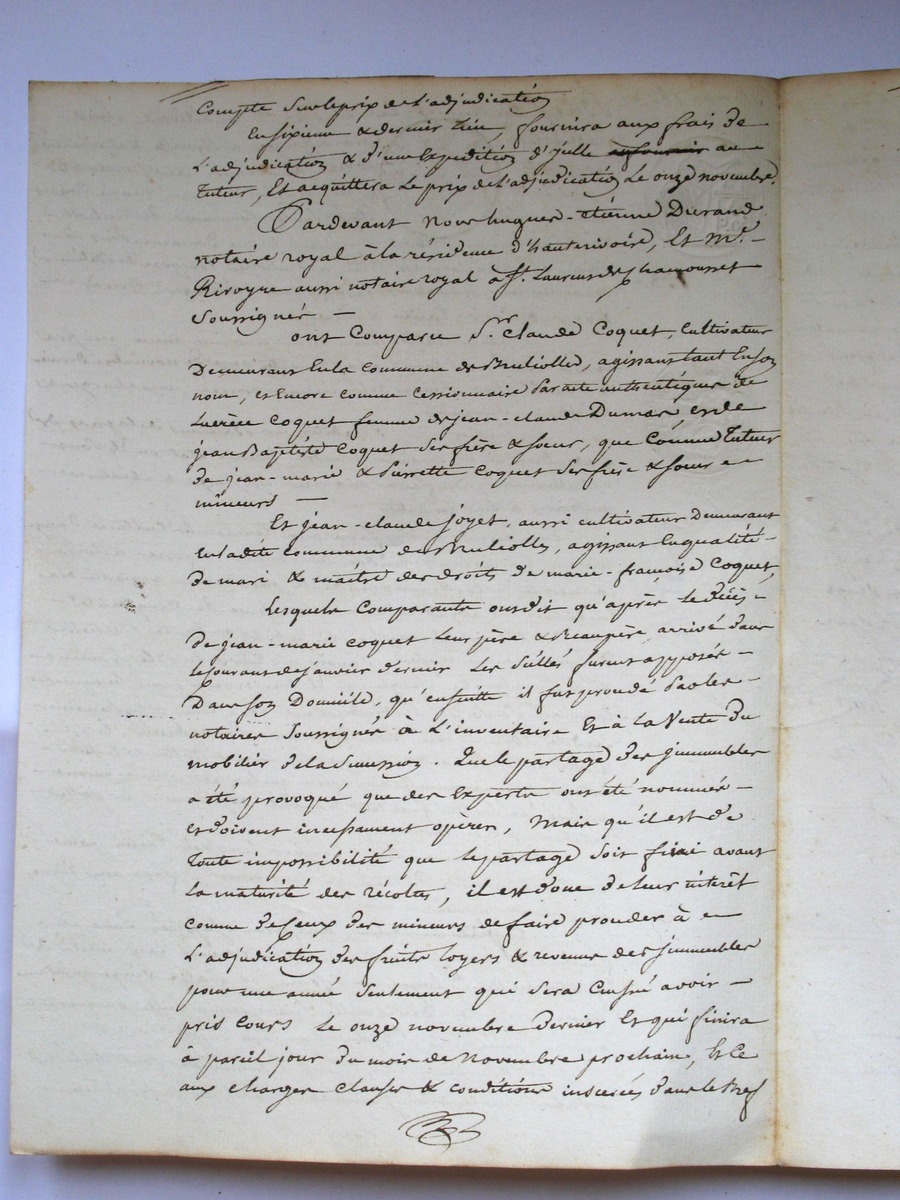 Compte sur le prix de l'adjudication
En sixieme & dernier lieu, fournira aux frais de
L'adjudication & d'une Expedition d'ycelle au
tuteur, Et acquittera Le prix de L'adjudication Le onze novembre.
Pardevant Nous hugues-Etienne Durand
notaire royal à la résidence d'hauterivoire, Et Mr.
Rivoyre aussi notaire royal à St. Laurent de Chamousset
Soussignés
ont Comparu Sr. Claude Coquet, Cultivateur
Demeurant En la Commune de Brullioles, agissant tant En son
nom, et Encore comme Cessionnaire par acte authentiques de
Lucrèce Coquet femme de jean-claude Dumas et de
jean Baptiste Coquet ses frère & soeur, que Comme tuteur
de jean-marie & pierrette Coquet ses frère & soeur
mineurs
Et jean-claude joyet, aussi cultivateur Demeurant
En ladite Commune de Brullioles, agissant En qualité
de mari & maître des droits de marie-françoise Coquet,
Lesquels Comparants ont dit qu'après le décès
de jean-marie coquet leur père & beaupère, arrivé dans
le courant de janvier dernier Les scellés furent apposés
Dans son Domicile, qu'ensuite il fut procédé par les
notaires soussignés à L'inventaire Et à La Vente du
mobilier de la Succession. Que le partage des jmmeubles
a été provoqué que des Experts ont été nommés
et doivent incessament opérer, Mais qu'il est de
toute impossibilité que le partage soit fini avant
La maturité des récoltes, il est donc de leur intérêt
comme de Ceux des mineurs de faire procéder à
L'adjudication des fruits loyers & revenus des jmmeubles
pour une année seulement qui sera Censée avoir
pris Cours Le onze novembre dernier Et qui finira
à pareil jour du mois de Novembre prochain, Et Ce
aux charges Clauses & conditions inserées dans le